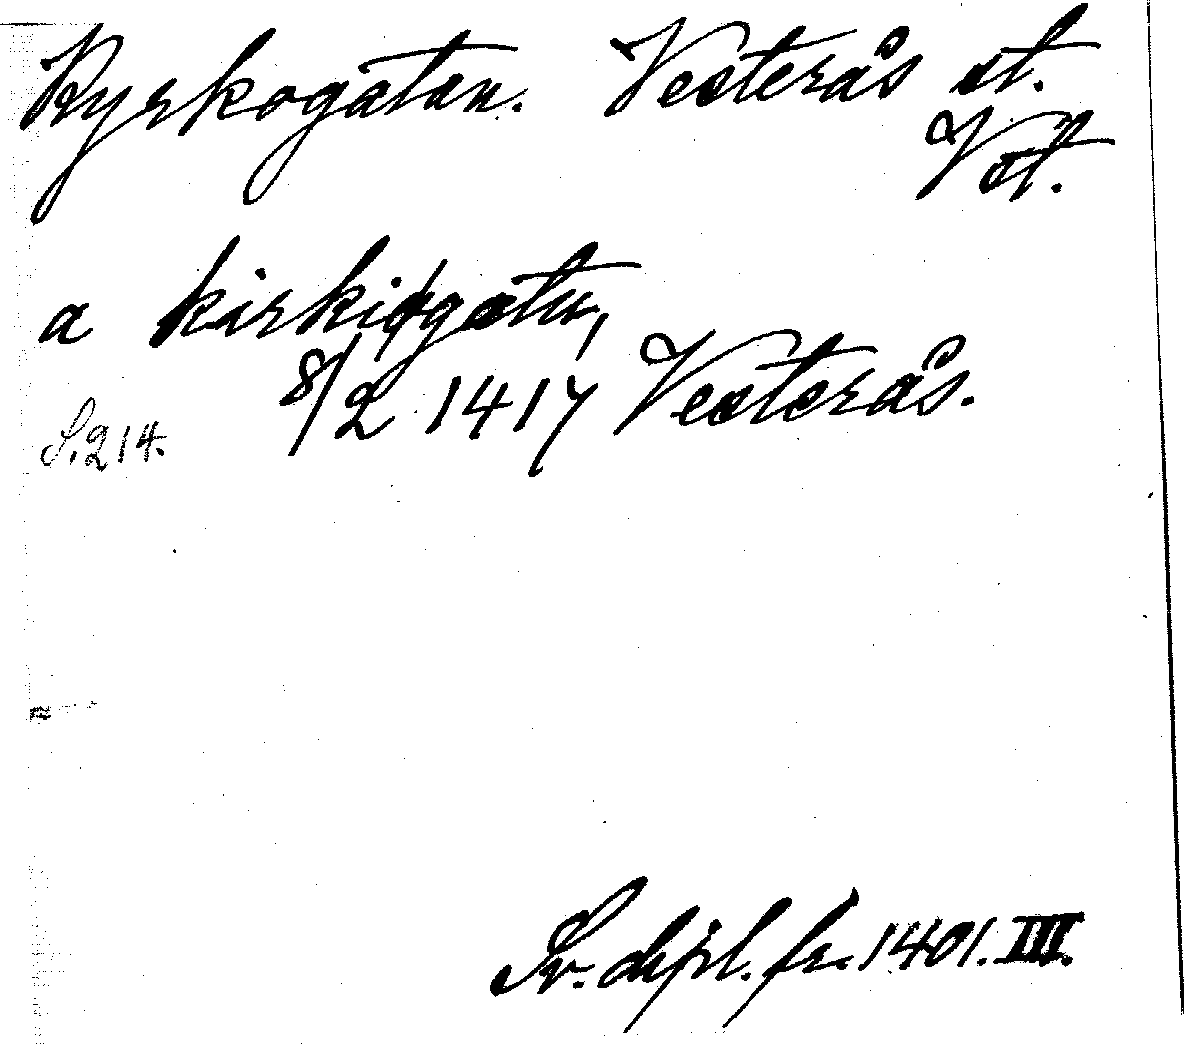 Kyrkogatan. Vesterås st.
Vst.
a kirkiogatu,
8/2 1417 Vesterås.
S. 214.
Sv. dipl. fr. 1401. III.